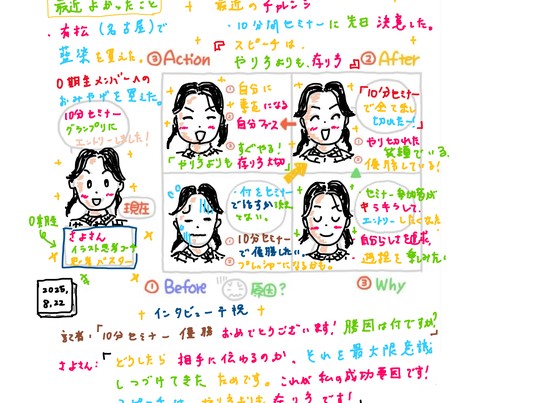 最近よかったこと
最近のチャレンジ
・有松(名古屋)で
藍染を買えた。
・10分間セミナーに先日決意した。
『スピーチは、
やり方よりも、在り方』
0期生メンバーへの
おみやげを買えた。
③Action
②After
10分セミナー
グランプリに
エントリーしました!
①自分に
素直になる
②自分ファースト
③すぐやる!
「やり方よりも在り方大切」
「10分セミナー
で全て出し
切れたー!」
①やり切れた
笑顔でいる。
②優勝している!
現在
0期生
さよさん
イラスト思考コーチ
①何をセミナー
②10分セミナー
で優勝したい
セミナー参加者が
キラキラして、
エントリーしたくなった
自分らしさを追求、
①Before
原因?
③Why
2025.
8.22
インタビュー予祝
記者:「10分セミナー優勝おめでとうございます!勝因は何ですか?
さよさん:「どうしたら相手に伝わるのか、それを最大限意識
しつづけてきたためです。これが私の成功要因です!
スピーチは、やり方よりも在り方です!